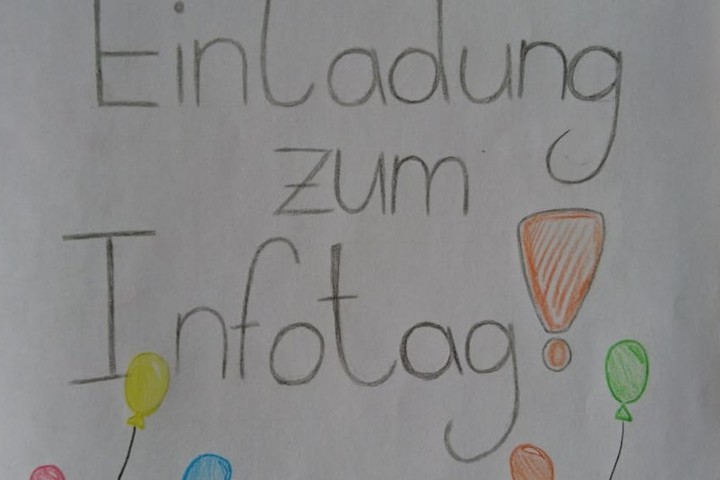 Einladung
zum
Infotag!